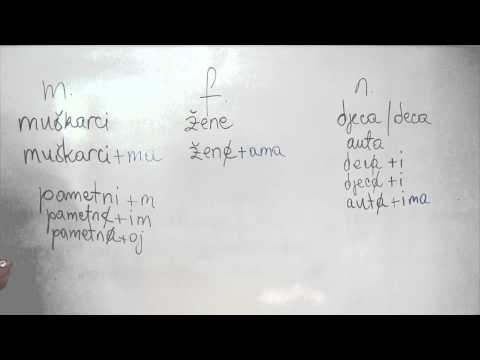 m. f. n.
muškarci žene djeca/deca
muškarci+ma žene+ama auta
deca+i
djeca+i
auta+ima
pametni+m
pametne+im
pametna+oj